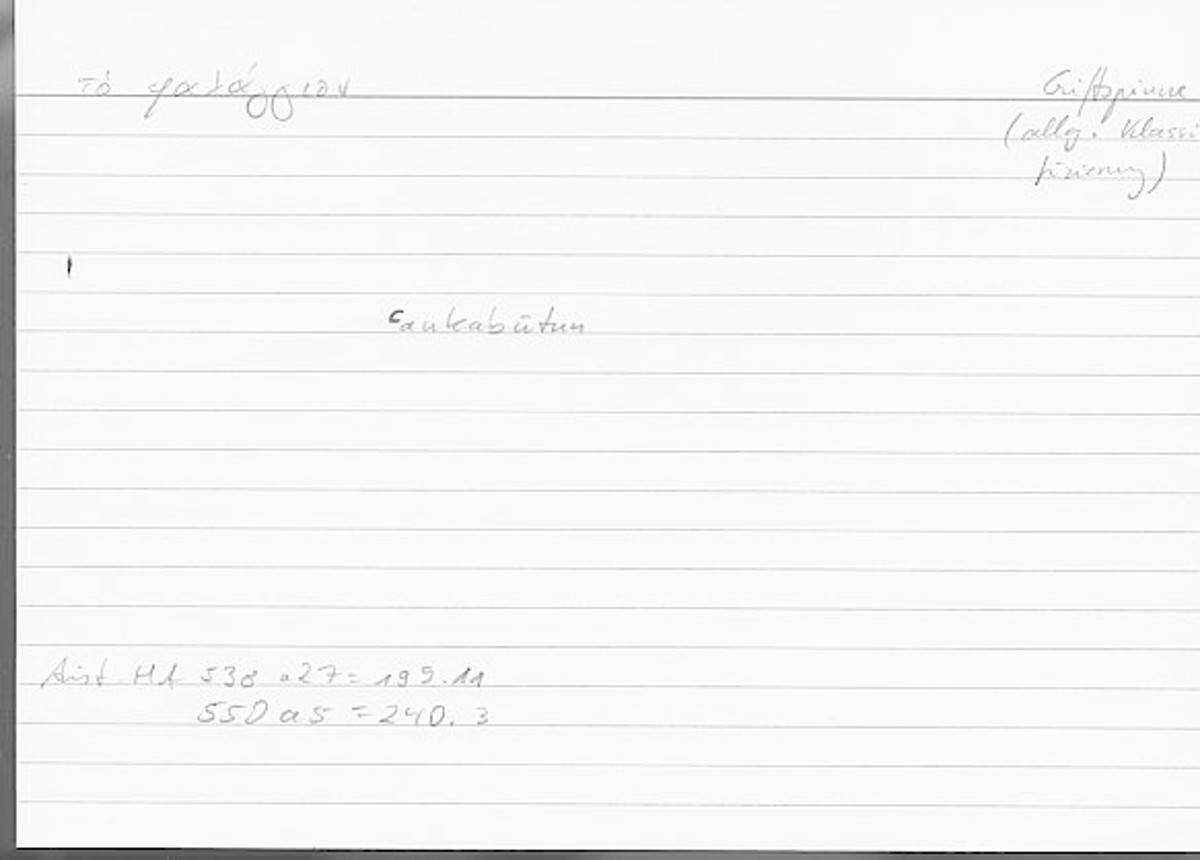 τὸ φαλάγγιον Giftspinne
(allg. Klassi
fizierung)
ʿankabūtun
Arist HA 538 a27 = 195.11
550 a5 = 240.3